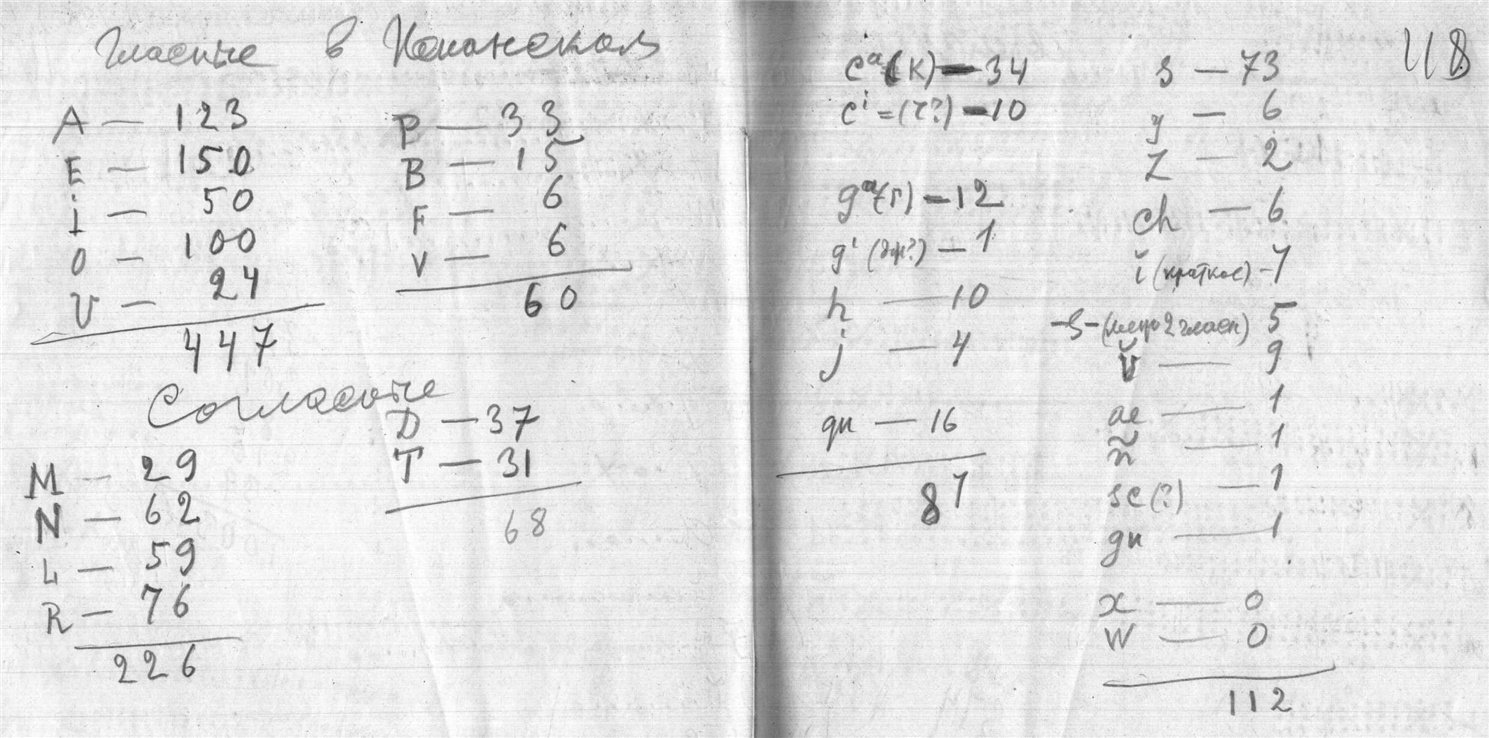 Гласные в Испанском
A — 123
E — 150
i — 50
O — 100
U — 24
447
P — 33
B — 15
F — 6
V — 6
60
Согласные
M — 29
N — 62
L — 59
R — 76
226
D — 37
T — 31
68
cª (к) — 34
cⁱ = (ч?) — 10
gª (г) — 12
gⁱ (дж?) — 1
h — 10
j — 4
qu — 16
87
48
s — 73
y — 6
Z — 2
ch — 6
ĭ (краткое) — 7
-s- (между 2 гласн) 5
ŭ — 9
ae — 1
ñ — 1
sc (?) — 1
gu — 1
x — 0
W — 0
112